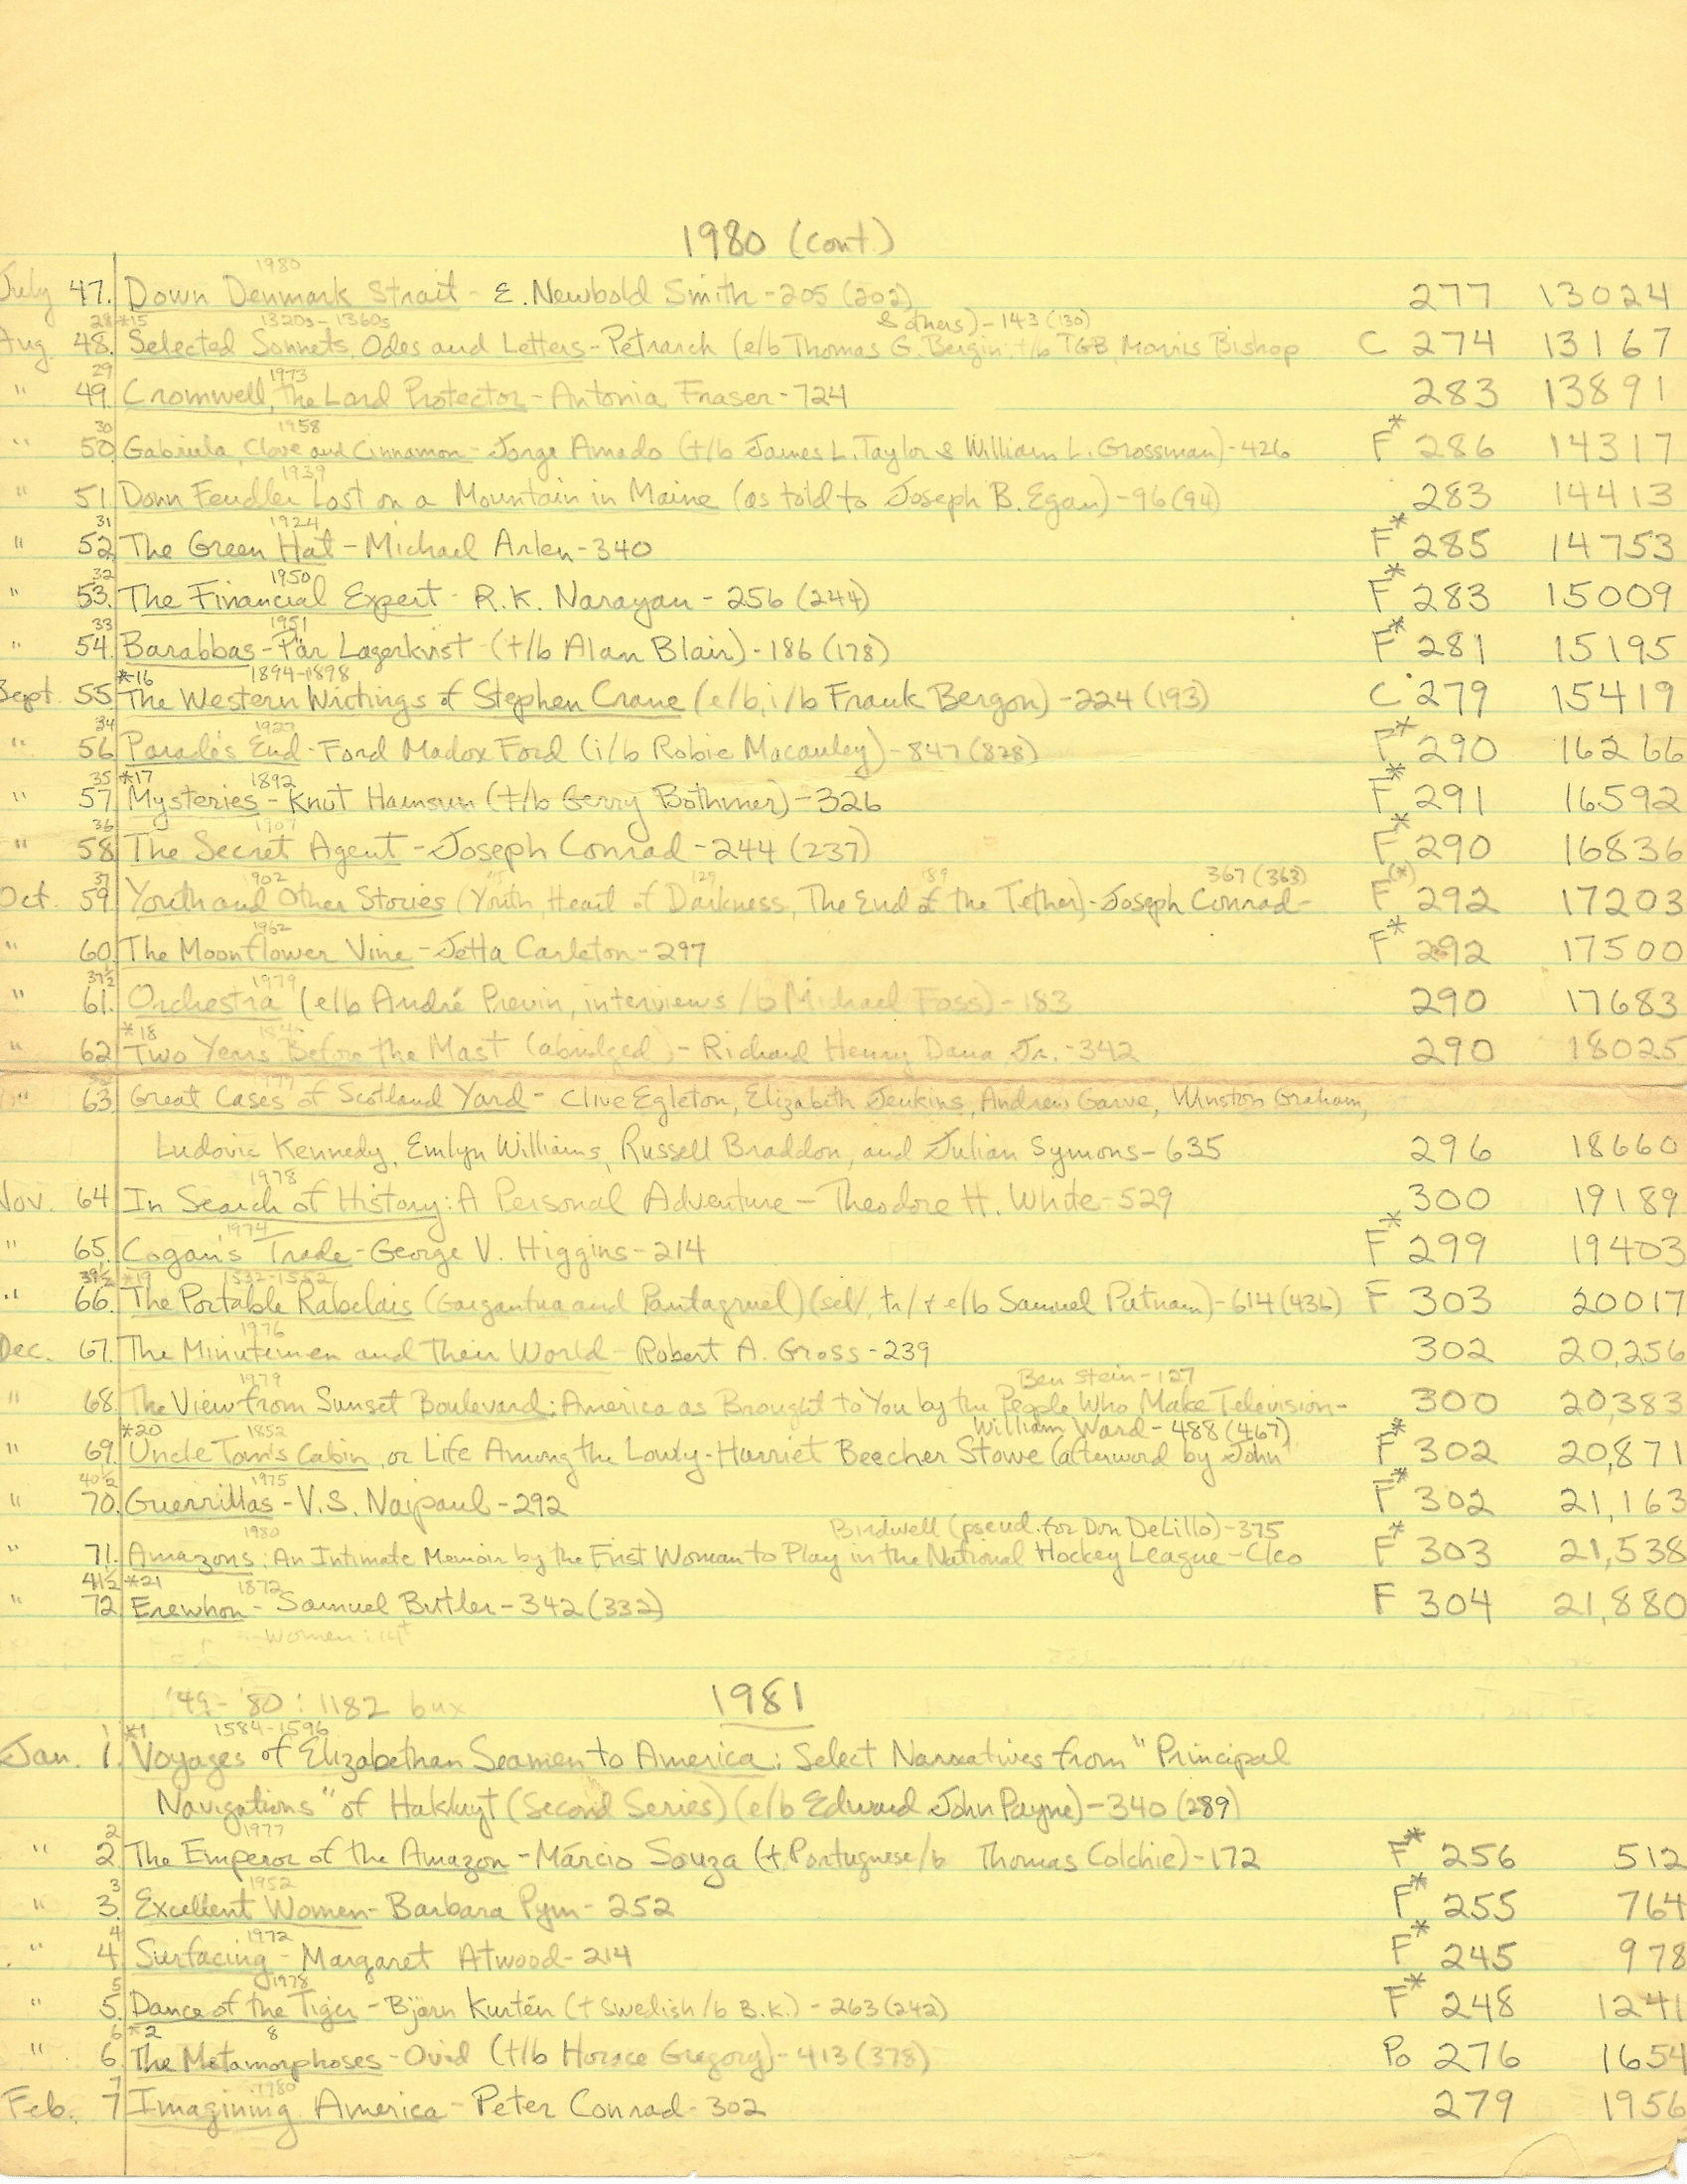 1980 (cont.)
1980
July 47. Down Denmark Strait - E. Newbold Smith - 205 (202) 277 13024
28 *15 1320s-1360s & others) - 143 (130)
Aug. 48. Selected Sonnets, Odes and Letters - Petrarch (e/b Thomas G. Bergin; t/b TGB, Morris Bishop C 274 13167
29 1973
" 49. Cromwell, the Lord Protector - Antonia Fraser - 724 283 13891
30 1958
" 50. Gabriela, Clove and Cinnamon - Jorge Amado (t/b James L. Taylor & William L. Grossman) - 426 F* 286 14317
1939
" 51. Donn Fendler Lost on a Mountain in Maine (as told to Joseph B. Egan) - 96 (94) 283 14413
31 1924
" 52. The Green Hat - Michael Arlen - 340 F* 285 14753
32 1950
" 53. The Financial Expert - R.K. Narayan - 256 (244) F* 283 15009
33 1951
" 54. Barabbas - Pär Lagerkvist - (t/b Alan Blair) - 186 (178) F* 281 15195
*16 1894-1898
Sept. 55. The Western Writings of Stephen Crane (e/b, i/b Frank Bergon) - 224 (193) C 279 15419
34 1927
" 56. Parade's End - Ford Madox Ford (i/b Robie Macauley) - 847 (828) F* 290 16266
35 *17 1892
" 57. Mysteries - Knut Hamsun (t/b Gerry Bothmer) - 326 F* 291 16592
36 1907
" 58. The Secret Agent - Joseph Conrad - 244 (237) F* 290 16836
37 1902 129 189 367 (363)
Oct. 59. Youth and Other Stories (Youth, Heart of Darkness, The End of the Tether) - Joseph Conrad - F(*) 292 17203
1962
" 60. The Moonflower Vine - Jetta Carleton - 297 F* 292 17500
37½ 1979
" 61. Orchestra (e/b André Previn, interviews /b Michael Foss) - 183 290 17683
*18
" 62. Two Years Before the Mast (abridged) - Richard Henry Dana Jr. - 342 290 18025
" 63. Great Cases of Scotland Yard - Clive Egleton, Elizabeth Jenkins, Andrew Garve, Winston Graham,
Ludovic Kennedy, Emlyn Williams, Russell Braddon, and Julian Symons - 635 296 18660
1978
Nov. 64. In Search of History: A Personal Adventure - Theodore H. White - 529 300 19189
1974
" 65. Cogan's Trade - George V. Higgins - 214 F* 299 19403
39½ *19 1532-1552
" 66. The Portable Rabelais (Gargantua and Pantagruel) (sel/, tr/ + e/b Samuel Putnam) - 614 (436) F 303 20017
1976
Dec. 67. The Minutemen and Their World - Robert A. Gross - 239 302 20,256
1979 Ben Stein - 127
" 68. The View from Sunset Boulevard: America as Brought to You by the People Who Make Television - 300 20,383
*20 1852 William Ward - 488 (467)
" 69. Uncle Tom's Cabin, or Life Among the Lowly - Harriet Beecher Stowe (afterword by John F* 302 20,871
40½ 1975
" 70. Guerrillas - V.S. Naipaul - 292 F* 302 21,163
1980 Birdwell (pseud. for Don DeLillo) - 375
" 71. Amazons: An Intimate Memoir by the First Woman to Play in the National Hockey League - Cleo F* 303 21,538
41½ *21 1872
" 72. Erewhon - Samuel Butler - 342 (332) F 304 21,880
Women: 14
'49-'80: 1182 bux 1981
1 *1 1584-1596
Jan. 1. Voyages of Elizabethan Seamen to America: Select Narratives from "Principal
Navigations" of Hakluyt (Second Series) (e/b Edward John Payne) - 340 (289)
2 1977
" 2. The Emperor of the Amazon - Márcio Souza (t. Portuguese/b Thomas Colchie) - 172 F* 256 512
3 1952
" 3. Excellent Women - Barbara Pym - 252 F* 255 764
4 1972
" 4. Surfacing - Margaret Atwood - 214 F* 245 978
5 1978
" 5. Dance of the Tiger - Björn Kurtén (t Swedish/b B.K.) - 263 (242) F* 248 1241
6 *2 8
" 6. The Metamorphoses - Ovid (t/b Horace Gregory) - 413 (378) Po 276 1654
7 1980
Feb. 7. Imagining America - Peter Conrad - 302 279 1956